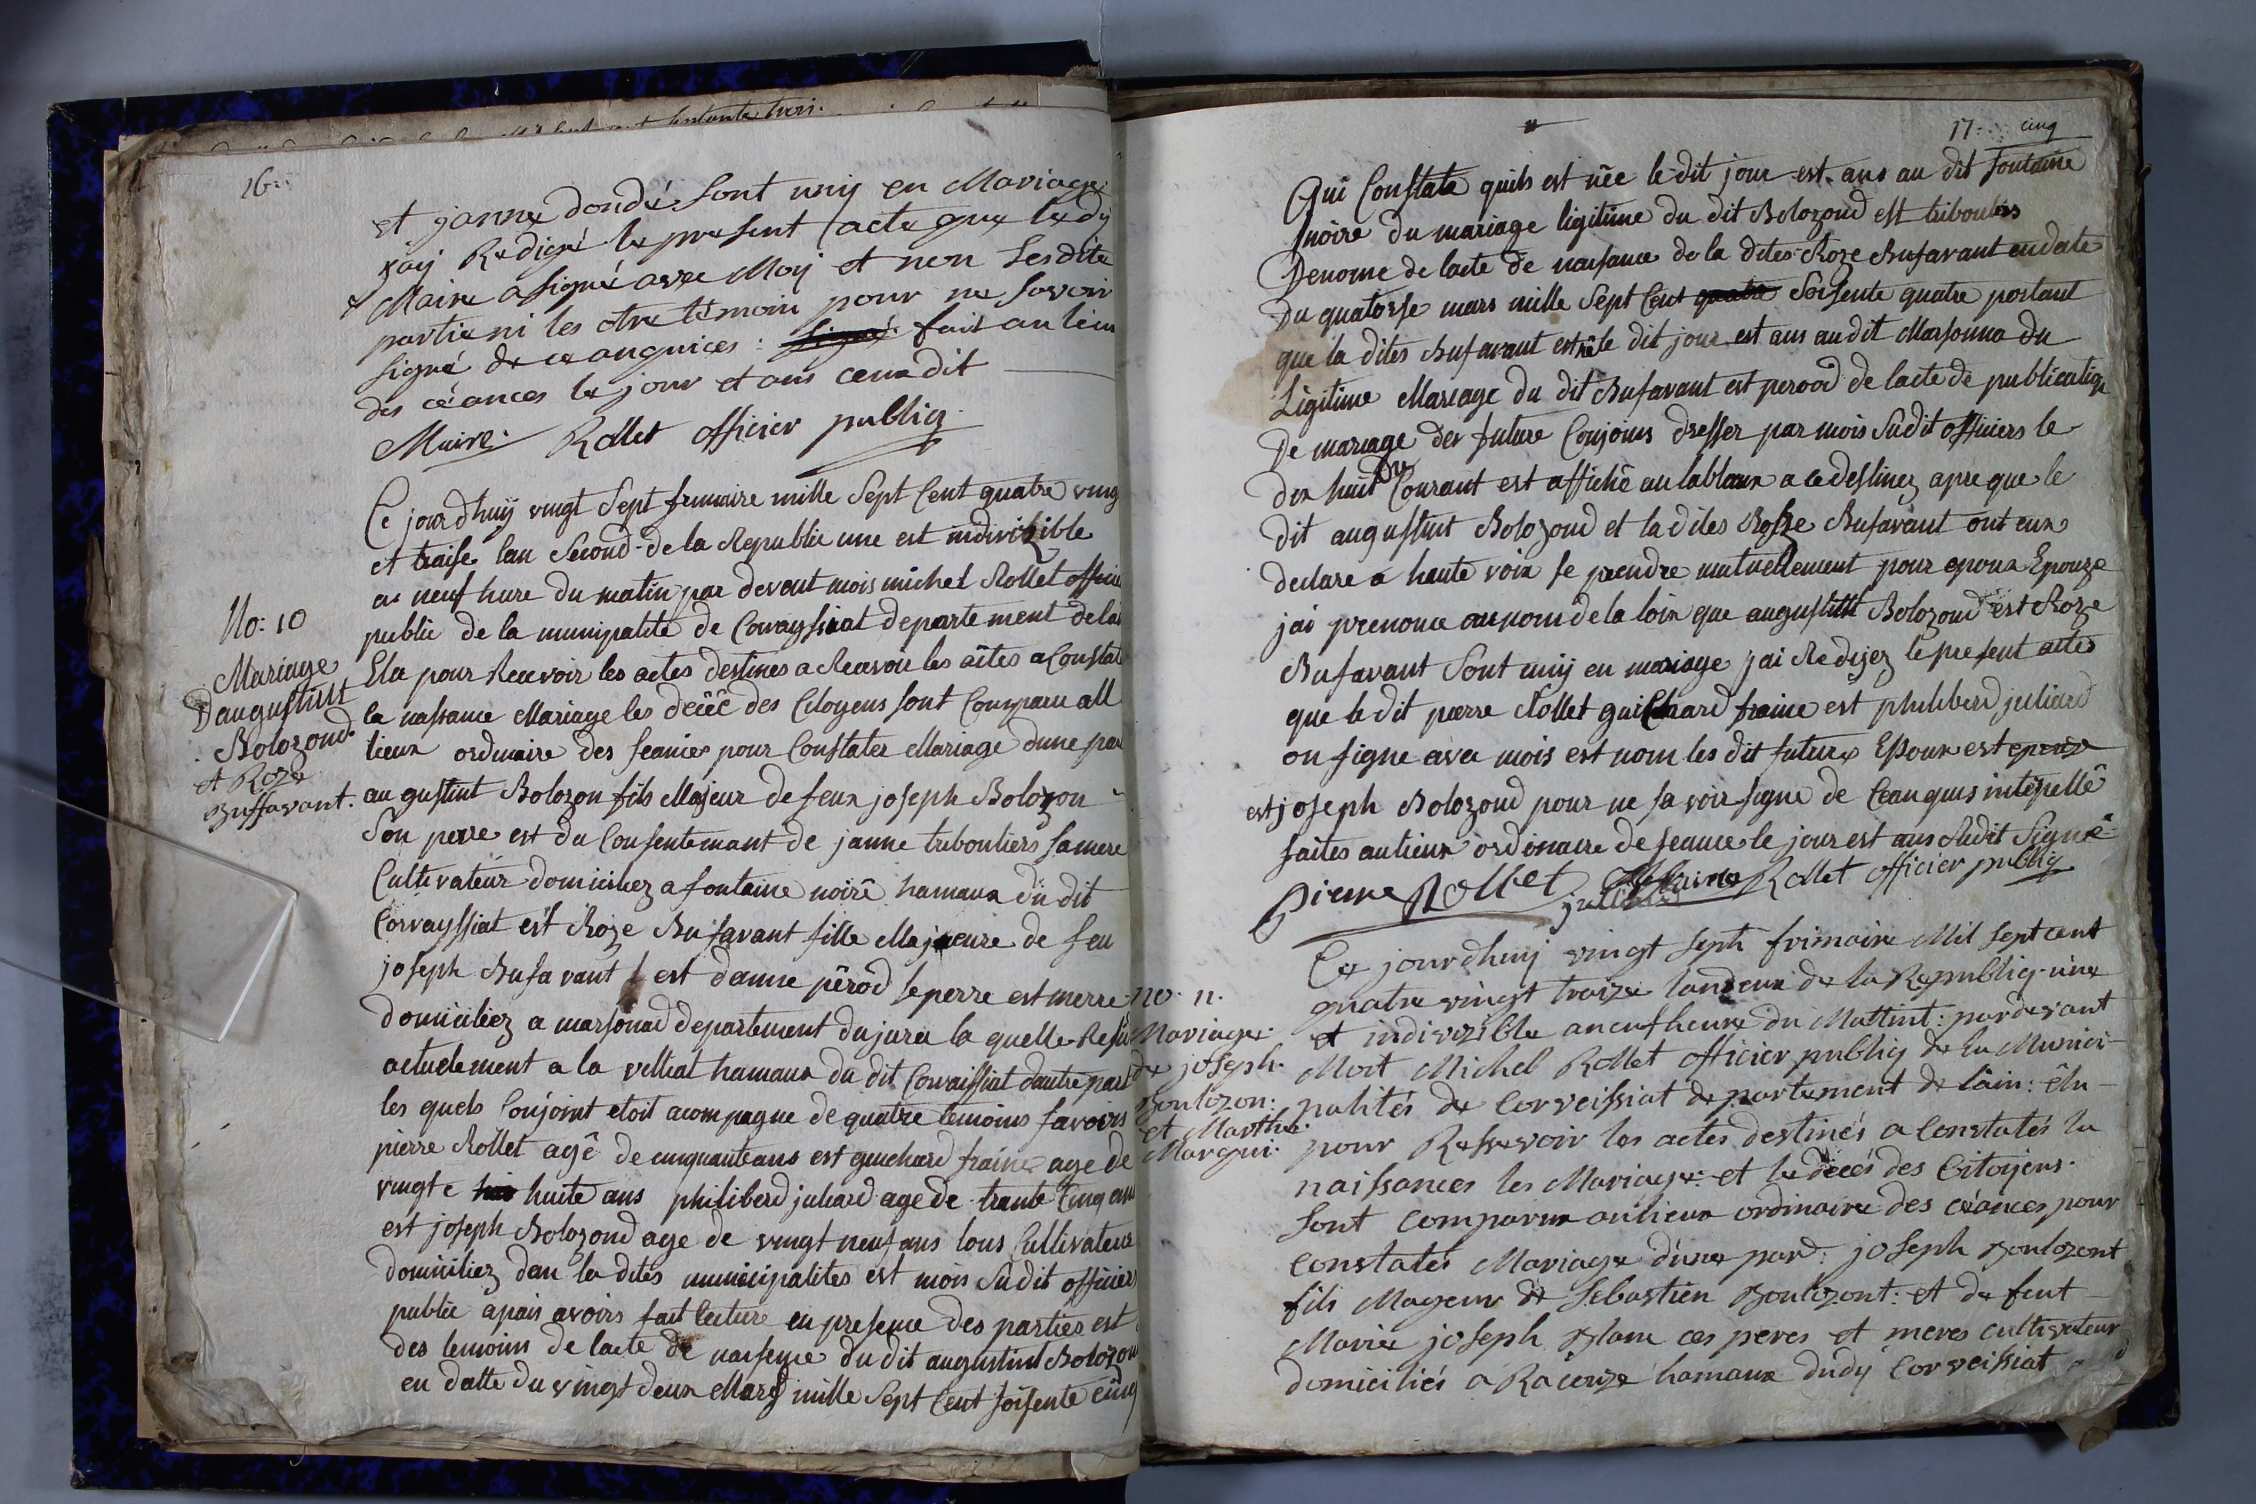 16
et janne dondé sont uniy en Mariage
jaij Redigé le present acte que ledy
Maire a signé avec Moij et non lesdite
partie ni les otre témoin pour ne savoir
signé de ce anquices : signé fait au lieu
des céances le jour et ans ceux dit
Maire. Rollet officier publiq
No: 10
Mariage
D'augustint
Bolozond
et Roze
Buffavant.
Ce jourdhuij vingt Sept frimaire mille Sept Cent quatre ving
et traise lan Second de la Republic une est indivizible
a neuf hure du matin par devant mois michel Rollet officie
public de la munipalité de Corvayssiat departement de lai
Elu pour Recevoir les actes destines a Recevoir les actes a Constate
la nassance Mariage les décéc des Citoyens sont Comparu all
lieux ordinaire des seances pour Constater Mariage dune par
augustint Bolozon fils Majeur de feux joseph Bolozon
Son perre est du Consentemant de janne tribouliers samere
Cultivateur domiciliez a fontaine noire hamaux du dit
Corvayssiat est Roze Bufavant fille Majeure de feu
joseph Bufavant est danne pérod se perre est merre
domiciliez a marsonad departement du jura la quelle Resi
actuelement a la velliat hamaux du dit Corvaissiat dautre part
les quels Conjoint etoit acompagne de quatre temoins savoirs
pierre Rollet agé de cinquante ans est guichard fraine age de
vingte huite ans philiberd juliard age de trante Cinq ans
est joseph Bolozond age de vingt neuf ans tous Cultivateur
domiciliez dan la dites municipalites est mois Sudit officier
public apais avoirs fait lecture en presence des parties est
des temoins de lacte de naissence du dit augustint Bolozon
en datte du vingt deux Mars mille Sept Cent soisente cinq
17 cinq
Qui Constate quils est née le dit jour est ans au dit fontaine
noire du mariage ligitime du dit Bolozond est tribouliers
Denome de lacte de naisance de la dites Roze Bufavant en date
Du quatorse mars mille Sept Cent quatre Soisente quatre portant
que la dites Bufavant est né le dit jour est ans au dit Marsonna du
Ligitime Mariage du dit Bufavant est perood de lacte de publication
De mariage des future Conjoins dresser par mois Sudit officiers le
dix huit du Courant est affiché au tableaux a ce destinez apre que le
dit augustint Bolozond et la dites Rosze Bufavant ont eux
declare a haute voix se prendre mutuellement pour epoux Epouze
jai prenonce au nom de la loix que augustint Bolozond est Roze
Bufavant Sont uniy en mariage jai Redigez le present actes
que le dit pierre Rollet guichard fraine est philiberd juliard
on signe avec mois est nom les dit future Epoux est epouse
est joseph Bolozond pour ne sa voir signe de Ceanquis intépellé
faites au lieux ordinaire de seance le jour est ans Sudit Signé
Pierre Rollet juliard Maire Rollet officier publiq
no. 11.
Mariage
de joseph
Boulozon:
et Marthe
Margui:
Ce jourdheuij vingt seph frimaire Mil sept cent
quatre vingt traize landeux de la Republiq. une
et indivizible a neuf heure du Mattint: pardevant
Moit Michel Rollet officier publiq de la Munici-
palités de Corveissiat departement de lain: élu
pour Ressevoir les actes destinés a Constatés la
naissances les Mariage: et le décés des Citoijens.
Sont comparux au lieux ordinaire des céances pour
Constatés Mariage d'une pard: joseph Boulozont
fils Mageur de Sebastien Boulozont: et de feut
Marie joseph Blanc ces peres et meres cultivateur
domiciliés a Racouze hamaux dudij Corveissiat